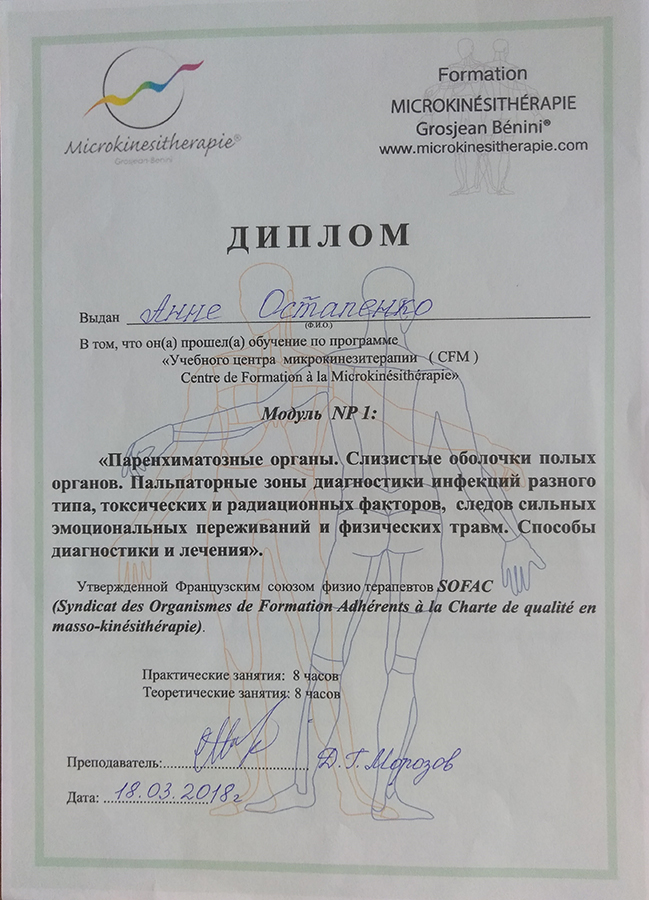 Microkinesitherapie®
Grosjean Bénini
Formation
MICROKINÉSITHÉRAPIE
Grosjean Bénini®
www.microkinesitherapie.com
ДИПЛОМ
Выдан Анне Остапенко
(Ф.И.О.)
В том, что он(а) прошел(а) обучение по программе
«Учебного центра микрокинезитерапии ( CFM )
Centre de Formation à la Microkinésithérapie»
Модуль NP 1:
«Паренхиматозные органы. Слизистые оболочки полых
органов. Пальпаторные зоны диагностики инфекций разного
типа, токсических и радиационных факторов, следов сильных
эмоциональных переживаний и физических травм. Способы
диагностики и лечения».
Утвержденной Французским союзом физио терапевтов SOFAC
(Syndicat des Organismes de Formation Adhérents à la Charte de qualité en
masso-kinésithérapie).
Практические занятия: 8 часов
Теоретические занятия: 8 часов
Преподаватель: Д.Г.Морозов
Дата: 18.03.2018г